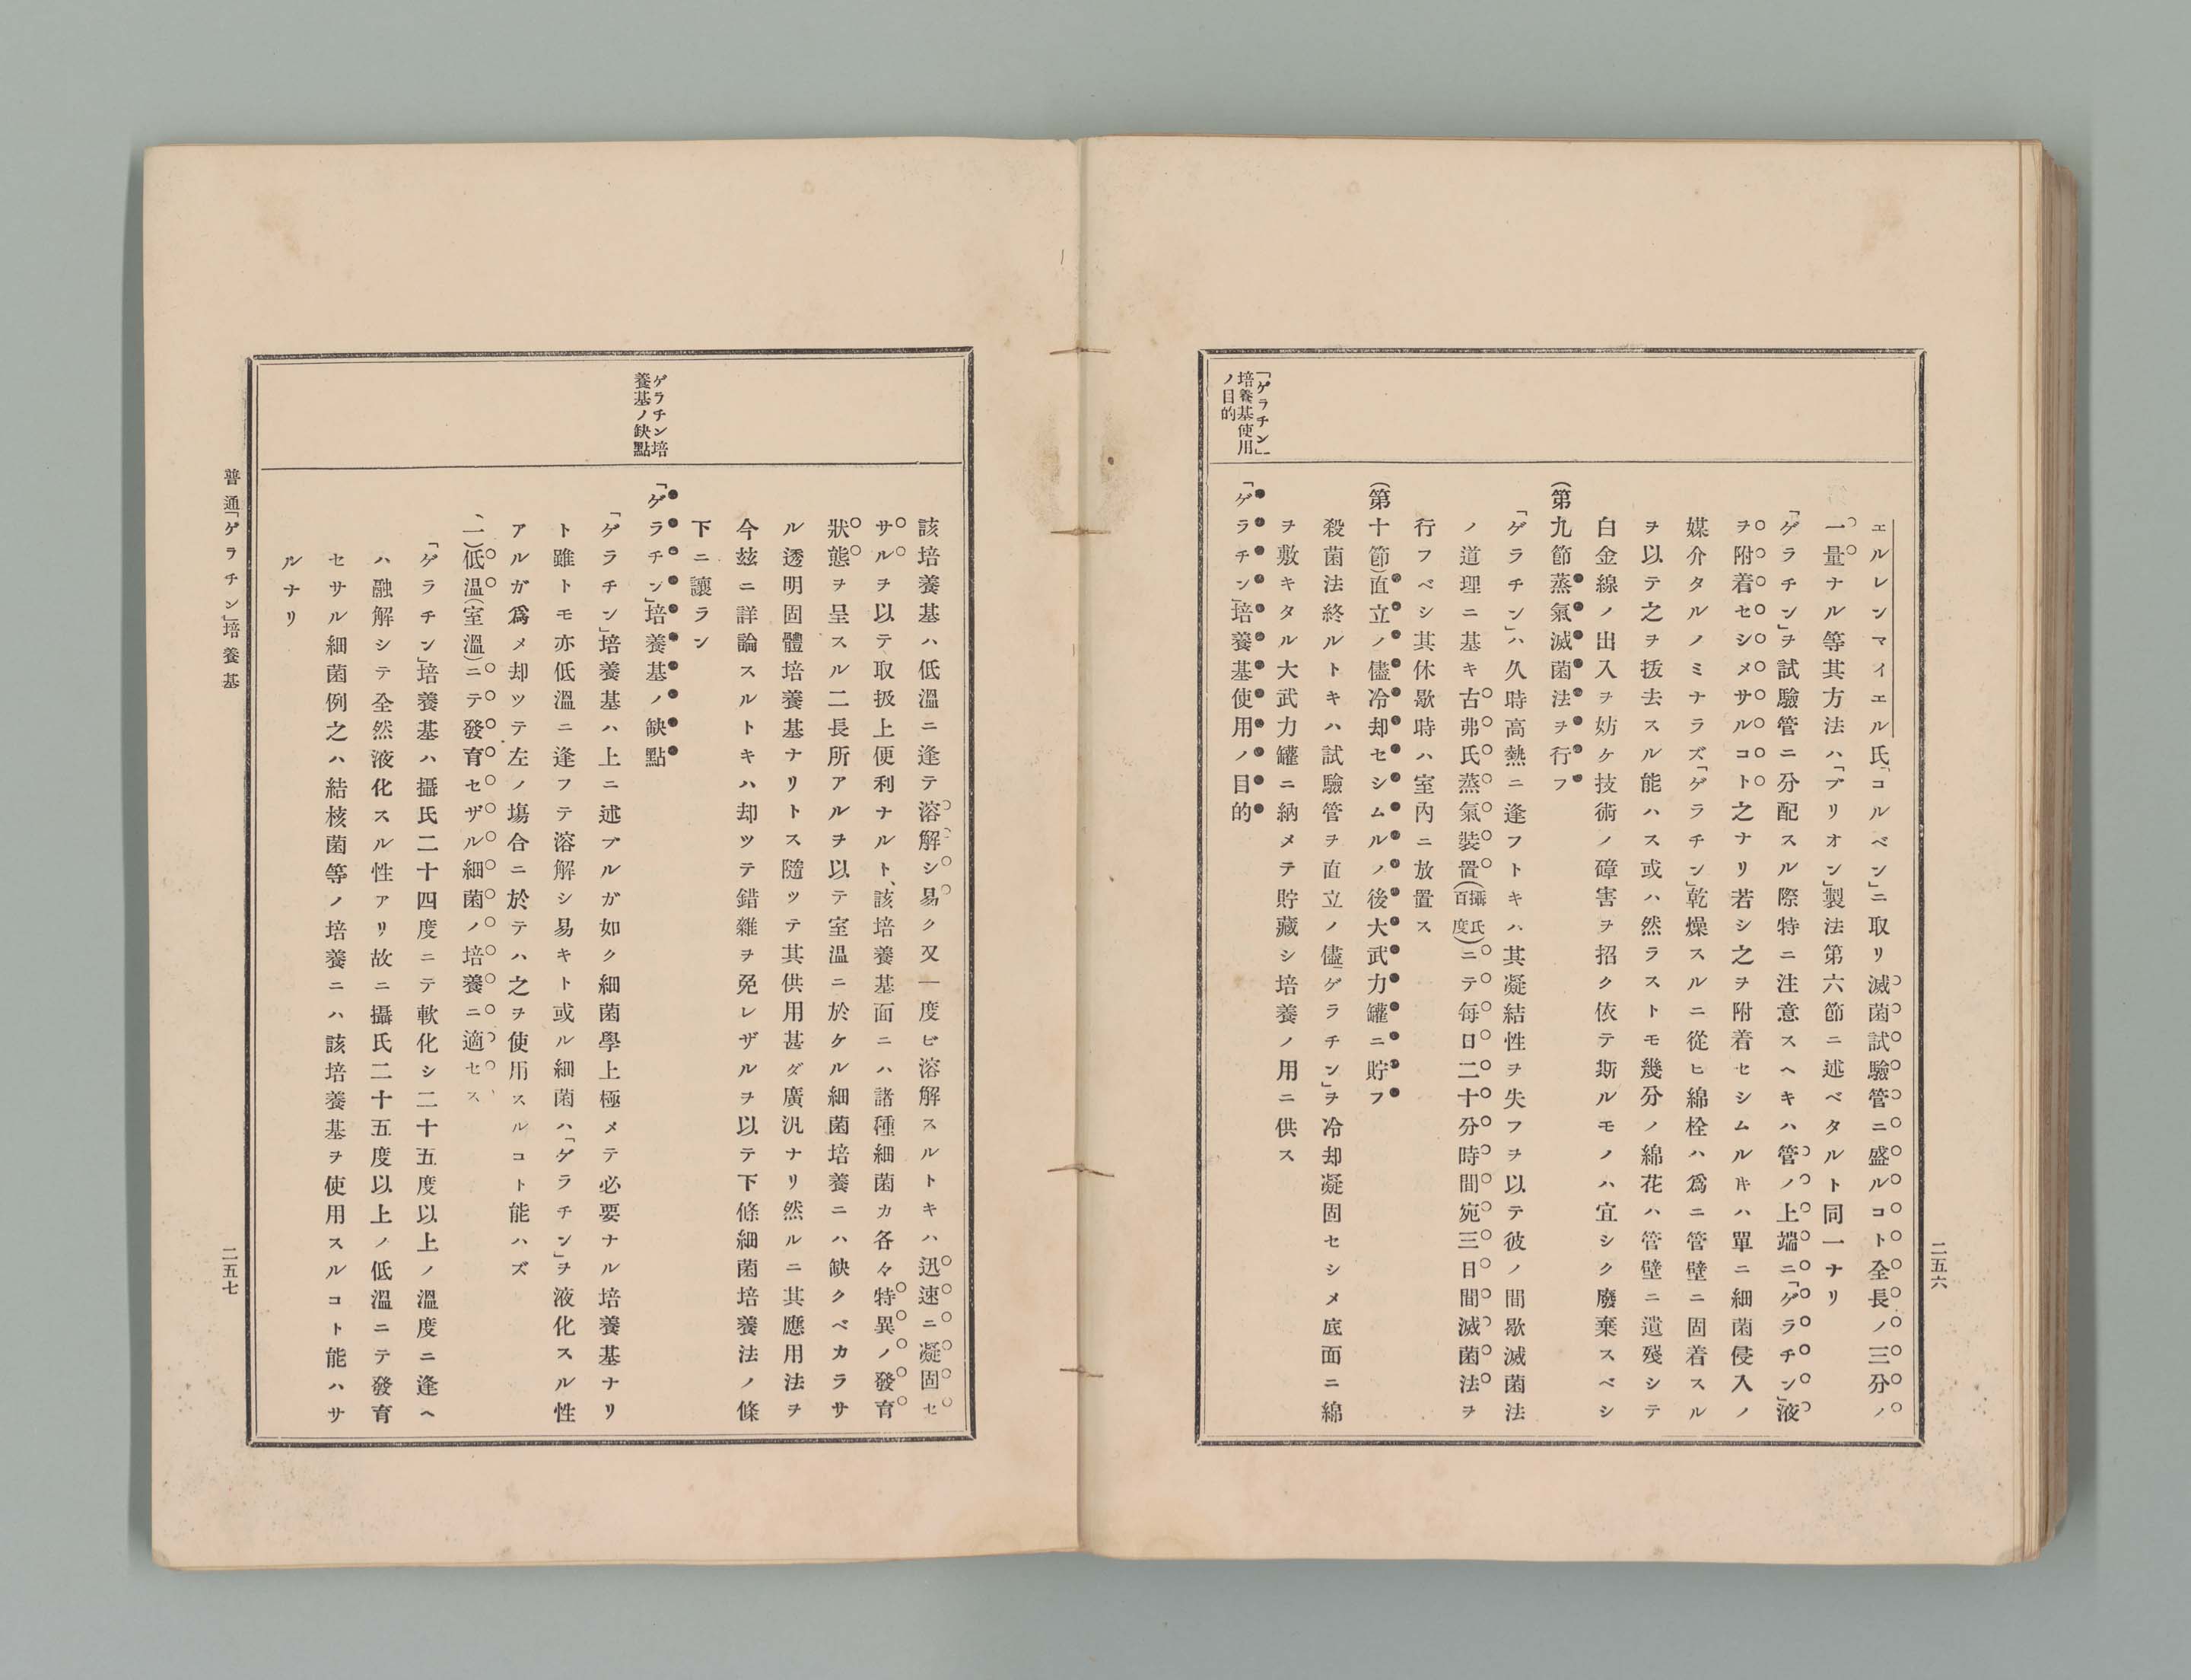 二五六
「ゲラチン」
培養基使用
ノ目的
エルレンマイエル氏「コルベン」ニ取リ滅菌試驗管ニ盛ルコト全長ノ三分ノ
一量ナル等其方法ハ「ブリオン」製法第六節ニ述ベタルト同一ナリ
「ゲラチン」ヲ試驗管ニ分配スル際特ニ注意スヘキハ管ノ上端ニ「ゲラチン」液
ヲ附着セシメサルコト之ナリ若シ之ヲ附着セシムルキハ單ニ細菌侵入ノ
媒介タルノミナラズ「ゲラチン」乾燥スルニ從ヒ綿栓ハ爲ニ管壁ニ固着スル
ヲ以テ之ヲ拔去スル能ハス或ハ然ラストモ幾分ノ綿花ハ管壁ニ遺殘シテ
白金線ノ出入ヲ妨ケ技術ノ障害ヲ招ク依テ斯ルモノハ宜シク廢棄スベシ
(第九節蒸氣滅菌法ヲ行フ
「ゲラチン」ハ久時高熱ニ逢フトキハ其凝結性ヲ失フヲ以テ彼ノ間歇滅菌法
ノ道理ニ基キ古弗氏蒸氣裝置(攝氏百度)ニテ毎日二十分時間宛三日間滅菌法ヲ
行フベシ其休歇時ハ室內ニ放置ス
(第十節)直立ノ儘冷却セシムルノ後大武力罐ニ貯フ
殺菌法終ルトキハ試驗管ヲ直立ノ儘「ゲラチン」ヲ冷却凝固セシメ底面ニ綿
ヲ敷キタル大武力罐ニ納メテ貯藏シ培養ノ用ニ供ス
「ゲラチン」培養基使用ノ目的
ゲラチン培
養基ノ缺點
該培養基ハ低溫ニ逢テ溶解シ易ク又一度ビ溶解スルトキハ迅速ニ凝固セ
サルヲ以テ取扱上便利ナルト、該培養基面ニハ諸種細菌カ各々特異ノ發育
狀態ヲ呈スル二長所アルヲ以テ室溫ニ於ケル細菌培養ニハ缺クベカラサ
ル透明固體培養基ナリトス隨ツテ其供用甚ダ廣汎ナリ然ルニ其應用法ヲ
今玆ニ詳論スルトキハ却ツテ錯雜ヲ免レザルヲ以テ下條細菌培養法ノ條
下ニ讓ラン
「ゲラチン」培養基ノ缺點
「ゲラチン」培養基ハ上ニ述ブルガ如ク細菌學上極メテ必要ナル培養基ナリ
ト雖トモ亦低溫ニ逢フテ溶解シ易キト或ル細菌ハ「ゲラチン」ヲ液化スル性
アルガ爲メ却ツテ左ノ塲合ニ於テハ之ヲ使用スルコト能ハズ
一)低溫(室溫)ニテ發育セザル細菌ノ培養ニ適セス
「ゲラチン」培養基ハ攝氏二十四度ニテ軟化シ二十五度以上ノ溫度ニ逢ヘ
ハ融解シテ全然液化スル性アリ故ニ攝氏二十五度以上ノ低溫ニテ發育
セサル細菌例之ハ結核菌等ノ培養ニハ該培養基ヲ使用スルコト能ハサ
ルナリ
普通「ゲラチン」培養基
二五七